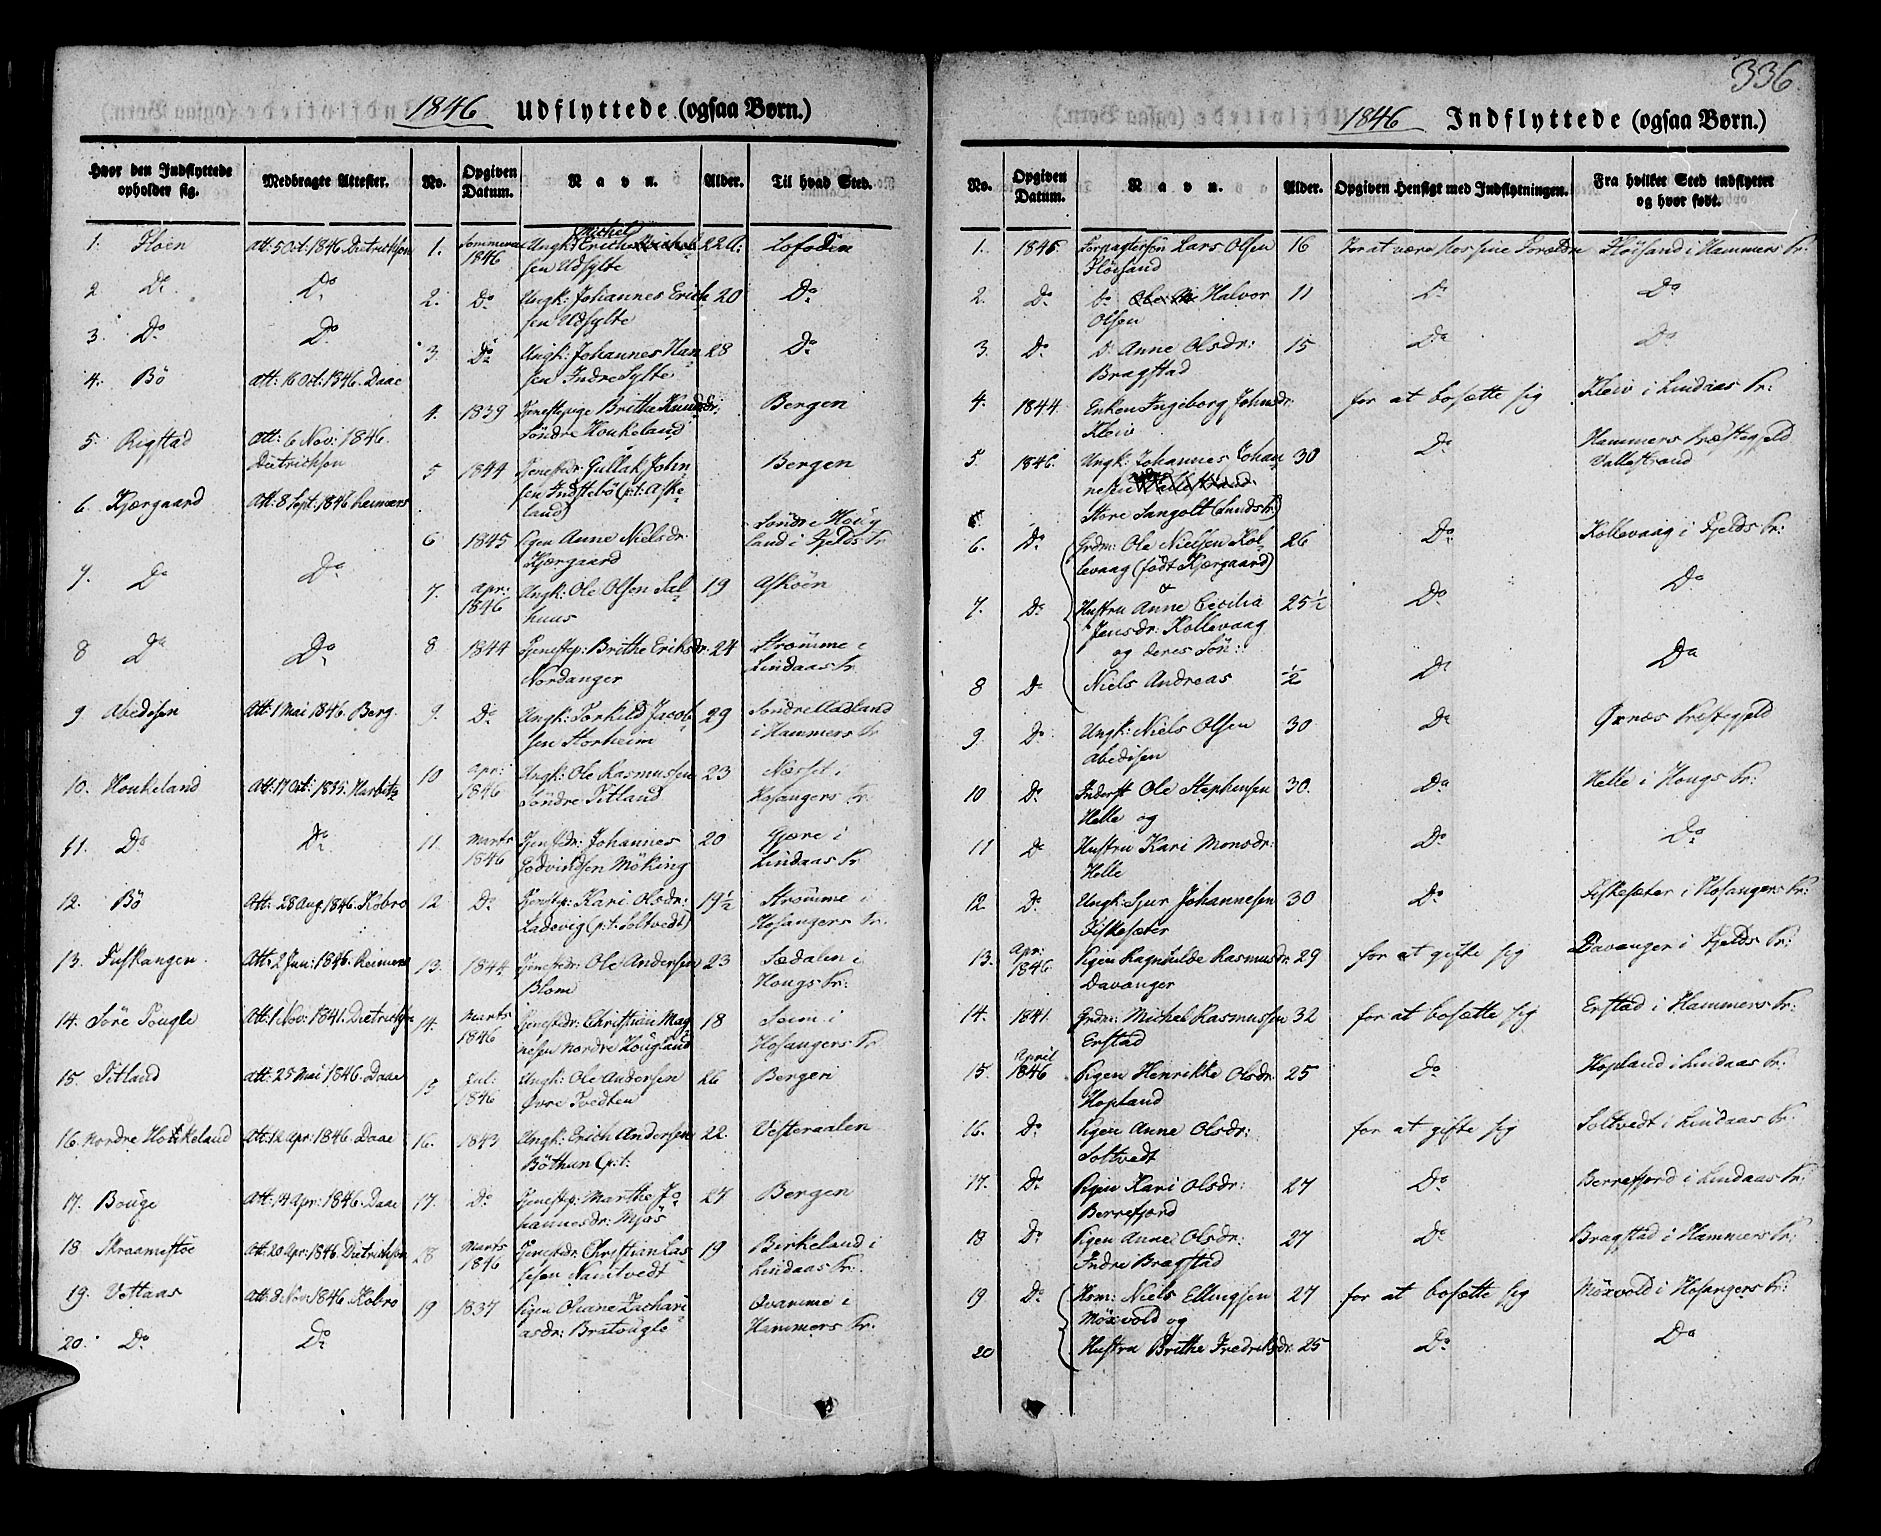 336.
1846 Udflyttede (ogsaa Børn.)
Hvor den Indflyttede opholder sig.
Medbragte Attester.
No.
Opgiven Datum.
Navn.
Alder.
Til hvad Sted.
1. Floen
Att: 5 Oct: 1846. Dietrichson
2 Do
Do
3. Do
Do
4. Bö
Att: 16 Oct: 1846. Daae
5. Rigstad
Att: 6 Nov: 1846.
Dietrichson
6. Kjærgaard
Att: 8 Sept: 1846 Reimers
7. Do
Do
8 Do
Do
9 Abedisen
Att: 1 Mai 1846. Berg.
10. Houkeland
Att: 17 Oct: 1835. Harbitz
11. Do
Do
12. Bö
Att: 28 Aug. 1846. Kobro
13. Tuskangen.
Att: 2 Jun: 1846. Reimers
14. Söre Tougle
Att: 1 Nov: 1841. Dietrichson
15. Titland
Att: 25 Mai 1846. Daae
16. Nordre Houkeland
Att: 12 Apr: 1846. Daae
17. Bouge
Att: 4 Apr: 1846. Daae
18. Skraamestøe
Att: 20 Apr: 1846. Dietrichson
19. Vottaas
Att: 8 Nov 1846. Kobro
20. Do
Do
1. Sommeren 1846 Ungk: Erich Michel
sen Udsylte 22 Lofoden
2. Do Ungk: Johannes Erich 20 Do
sen Udsylte
3. Do Ungk: Johannes Han 28 Do
sen Indre Sylte
4. 1839 Tjenestepige Brithe Knudsdr. Bergen
Söndre Houkeland
5 1844 Tjenestedr: Gullak John Bergen
sen Indstebö (p:t: Aske
land)
6 1845 Pigen Anne Nielsdr. Söndre Houg
Kjærgaard land i Fjelds Pr.
7. Apr: 1846 Ungk: Ole Olsen Sal 19 Askøen
huus
8 1844 Tjenestep: Brithe Eriksdr. 24 Strømme i
Nordanger Lindaas Pr.
9. Do Ungk: Torkild Jacob 29 Söndre Madland
sen Storheim i Hammers Pr
10 Apr: 1846 Ungk: Ole Rasmussen 23 Næsset i
Söndre Titland Hosangers Pr.
11. Marts 1846 Tjenstdr: Johannes 20 Gjære i
Godvindsen Möking Lindaas Pr.
12 Do Tjenstep: Kari Olsdr: 19½ Strømme i
Ladevig (p:t: Soltvedt) Hosangers Pr.
13. 1844 Tjenestdr: Ole Andersen 23 Sædalen i
Blom Hougs Pr:
14. Marts 1846 Tjenestdr: Christian Mag 18 Seim i
nesen Nordre Hougland Hosangers Pr
15 Jul: 1846 Ungk: Ole Andersen 26 Bergen
Øvre Tvedten
16. 1843 Ungk: Erich Andersen 22. Vesteraalen
Böthun (p:t:
17. Do Tjenestep: Marthe Jo 27 Bergen
hannesdr: Mjös
18 Marts 1846 Tjenestdr: Christian Las 19 Birkeland i
sesen Namtvedt Lindaas Pr:
19 1837 Pigen Oluine Zachari Qvamme i
asdr: Bratougle Hammers Pr:
1846 Indflyttede (ogsaa Børn.)
No.
Opgiven Datum.
Navn.
Alder.
Opgiven Hensigt med Indflytningen.
Fra hvilket Sted indflyttet og hvor født.
1. 1846 Forpagtersön Lars Olsen 16 For at være hos sine Forældre Flöisand i Hammers Pr:
Flöisand
2. Do Do Halvor 11 Do Do
Olsen
3. Do D: Anne Olsdr: 15 Do Do
Bragstad
4. 1844. Enken Ingeborg Johnsdr. for at bosætte sig Kleiv i Lindaas Pr:
Kleiv
5. 1846. Ungk: Johannes Johan 30 Do Hammers Præstegjeld
nesen Vallestrand
Store Sangolt (Lundstr)
6. Do Grdm: Ole Nielsen Kol 26 Do Kollevaag i Fjelds Pr:
levaag (født Kjærgaard)
&
7. Do Hustru Anne Cecilia 25½ Do Do
Jensdr: Kollevaag
og deres Sön:
8 Do Niels Andreas ½ Do Do
9. Do Ungk: Niels Olsen 30 Do Ørnæs Præstegjeld
Abedisen
10 Do Inderst Ole Stephensen 30. Do Helle i Hougs Pr:
Helle og
11 Do Hustru Kari Monsdr: Do Do
Helle
12. Do Ungk: Sjur Johannesen 30 Do Fiskesæter i Hosangers Pr:
Fiskesæter
13. Apr: 1846. Pigen Ragnhilde Rasmusdr. 29 for at gifte sig Davanger i Fjelds Pr:
Davanger
14. 1841. Grdm: Michel Rasmussen 32 for at bosætte sig Erstad i Hammers Pr:
Erstad
15. April 1846 Pigen Henrikke Olsdr: 25 Do Hopland i Lindaas Pr:
Hopland
16. Do Pigen Anne Olsdr: for at gifte sig Soltvedt i Lindaas Pr
Soltvedt
17. Do Pigen Kari Olsdr: 27 Do Berrefjord i Lindaas Pr:
Berrefjord
18 Do Pigen Anne Olsdr: 27 Do Bragstad i Hammers Pr:
Indre Bragstad
19 Do Hsm: Niels Ellingsen 27 for at bosætte sig Möxvold i Hosangers Pr:
Möxvold og
20 Hustru Brithe Fredriksdr. 25 Do Do